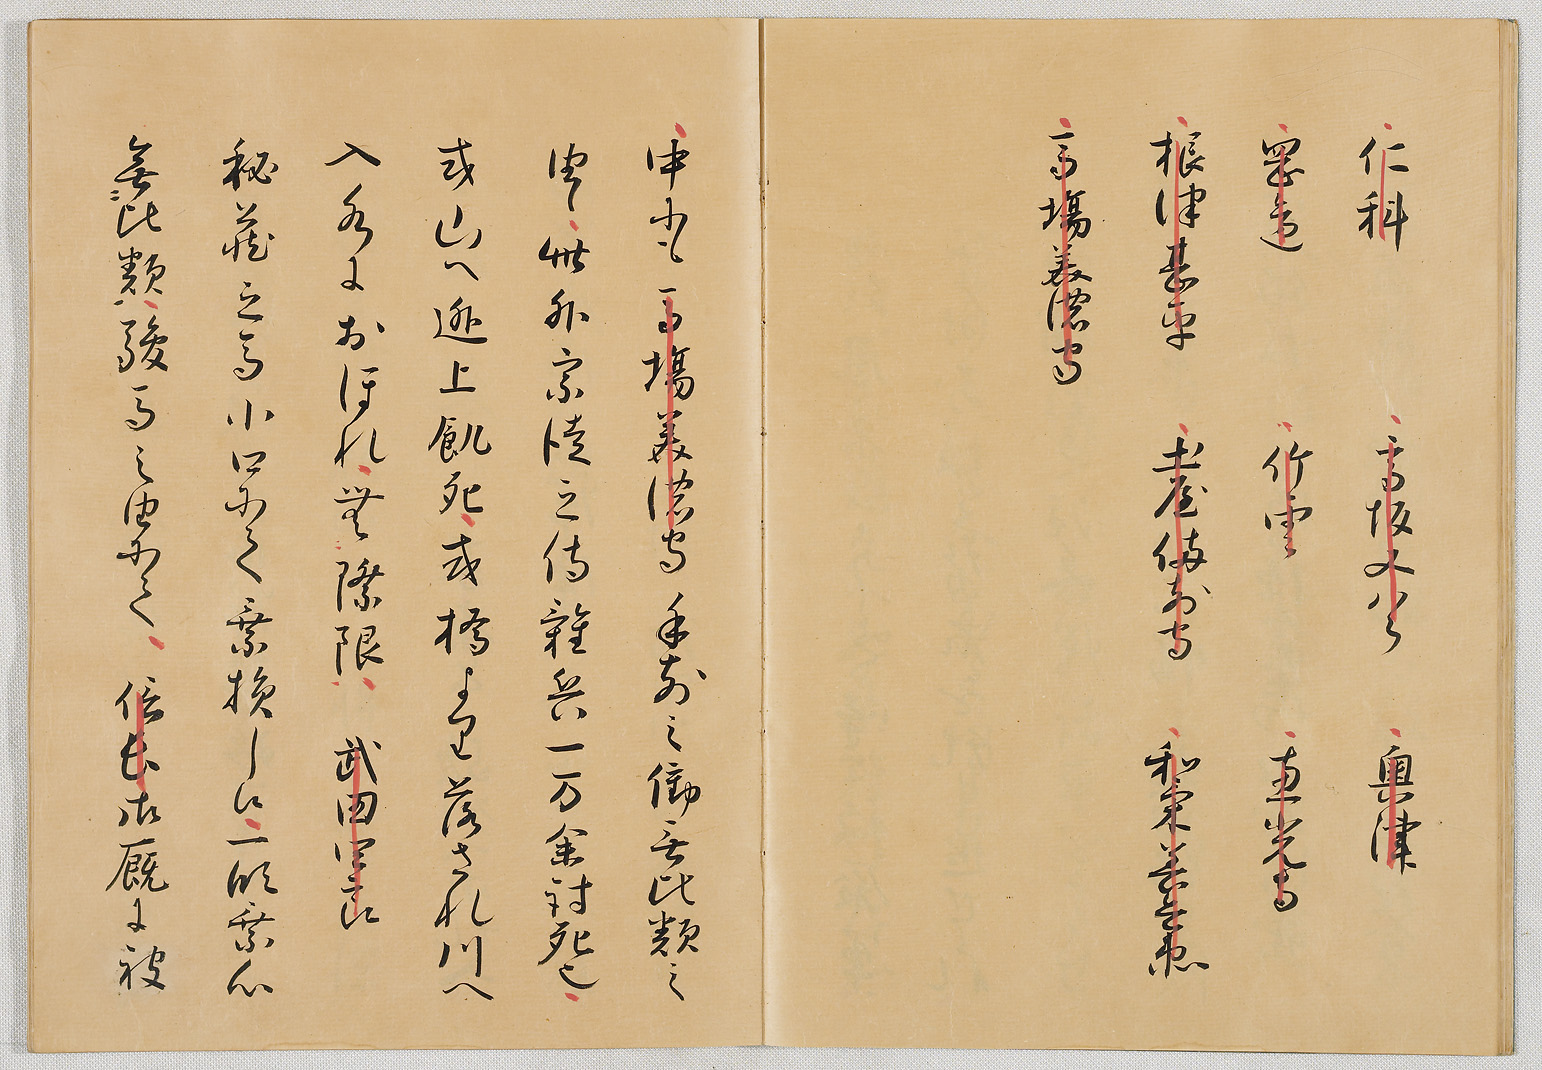 仁科　高坂又八郎　奥津
岡辺　竹雲　恵光寺
根津甚平　土屋備前守　和気善兵衛
馬場美濃守
中にも馬場美濃守手前之働無比類之
由候此外宗徒之侍雑兵一万余討死也
或山へ逃上飢死或橋より落され川へ
入水におほれ無際限　武田四郎
秘蔵之馬小口にて乗損しに一段乗心
無比類駿馬之由にて　信長御厩に被